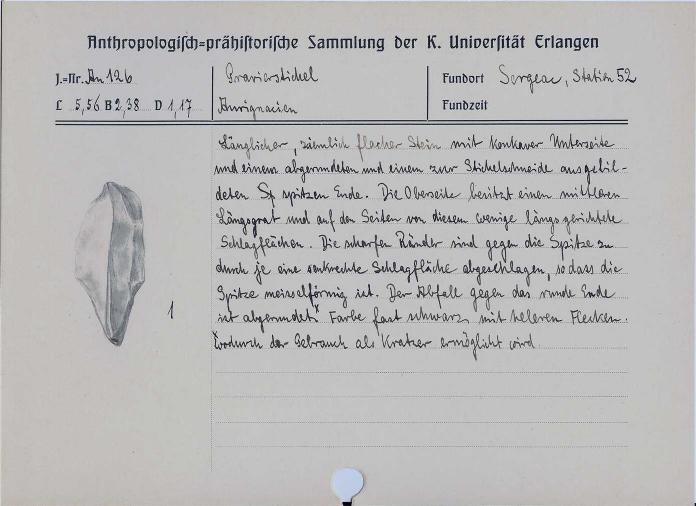 Anthropologisch=prähistorische Sammlung der K. Universität Erlangen
J.=Nr. An 126
Gravierstichel
Fundort Sergeac, Station 52
L 5,56 B 2,38 D 1,17
Aurignacien
Fundzeit
Länglicher, ziemlich flacher Stein mit konkaver Unterseite
und einem abgerundeten und einem zur Stichelschneide ausgebil-
deten Sp spitzen Ende. Die Oberseite besitzt einen mittleren
Längsgrat und auf den Seiten von diesem wenige längs gerichtete
Schlagflächen. Die scharfen Ränder sind gegen die Spitze zu
durch je eine senkrechte Schlagfläche abgeschlagen, so dass die
Spitze meisselförmig ist. Der Abfall gegen das runde Ende
ist abgerundet.x Farbe fast schwarz mit helleren Flecken.
xwodurch der Gebrauch als Kratzer ermöglicht wird.
1